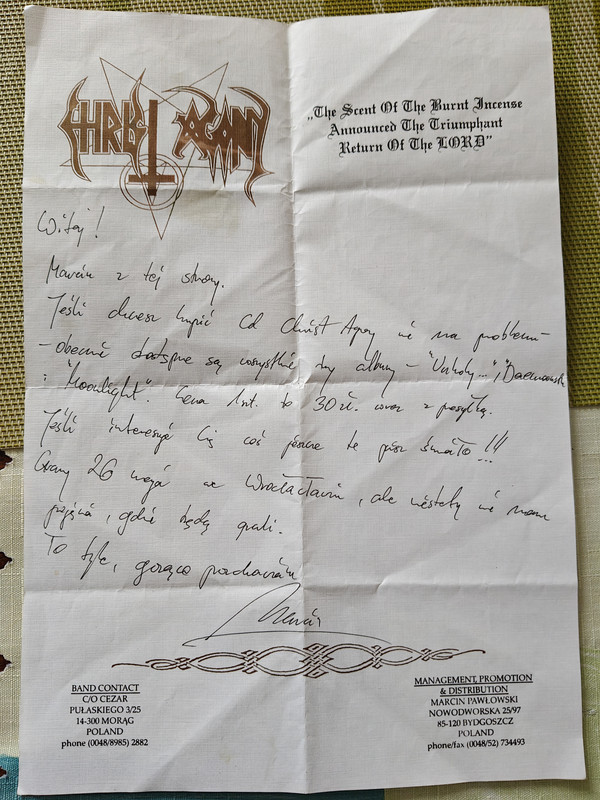 CHRIST AGONY
„The Scent Of The Burnt Incense
Announced The Triumphant
Return Of The LORD"
Witaj!
Marcin z tej strony.
Jeśli chcesz kupić cd Christ Agony nie ma problemu
- obecnie dostępne są wszystkie trzy albumy - "Unholy...", "Daemoonseth
i "Moonlight". Cena 1szt. to 30 zł. wraz z przesyłką.
Jeśli interesuje Cię coś jeszcze to pisz śmiało!!!
Gramy 26 maja we Wrocławiu, ale niestety nie mam
pojęcia, gdzie będą grali.
To tyle, gorąco pozdrawiam
Marcin
BAND CONTACT
C/O CEZAR
PUŁASKIEGO 3/25
14-300 MORĄG
POLAND
phone (0048/8985) 2882
MANAGEMENT, PROMOTION
& DISTRIBUTION
MARCIN PAWŁOWSKI
NOWODWORSKA 25/97
85-120 BYDGOSZCZ
POLAND
phone/fax (0048/52) 734493